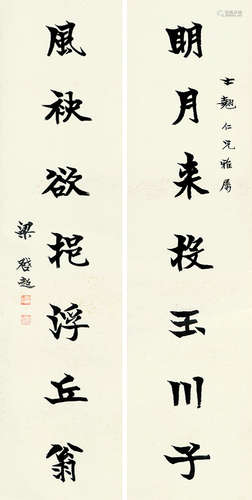 士翹仁兄雅屬
明月來投玉川子
風袂欲挹浮丘翁
梁啓超